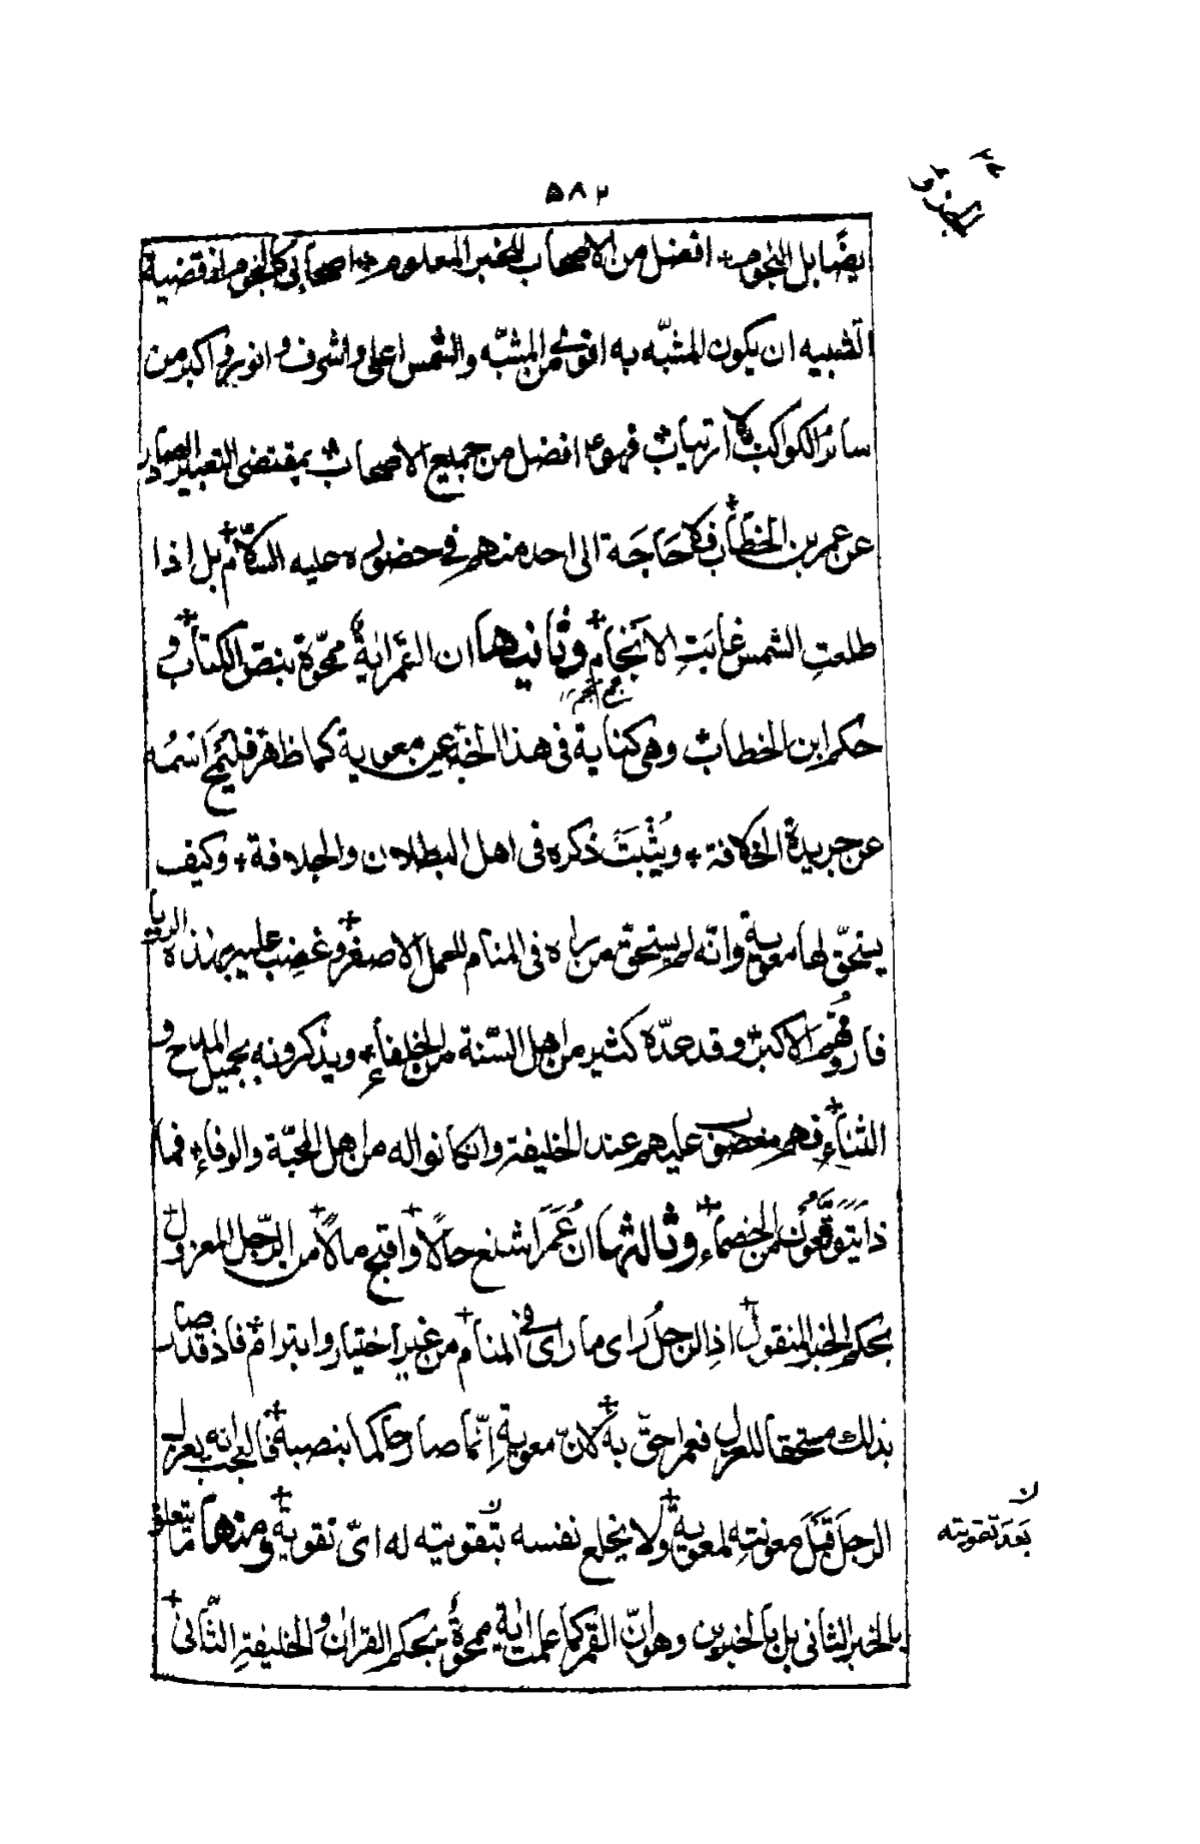 ۵۸۲
يضًا بل النجوم + افضل من الاصحاب للخبر المعلوم + اصحابي كالنجوم اذ قضية
التشبيه ان يكون المشبّه به اقوى من المشبّه والشمس اعلى واشرف و انور و اكبر من
سائر الكواكب بلا ارتياب فهو افضل من جميع الاصحاب بمقتضى التعبير الصادر
عن عمر بن الخطاب + فلا حَاجَة الى احد منهم في حضوره عليه السلام + بل اذا
طلعتِ الشمس غابَتِ الانجام + وثانيها ان القمر اية ممحوّة بنصّ الكتاب + و
جمع نجم
حكم ابن الخطاب وهى كناية فى هذا الخبر عن معوية كما ظاهر فليُمح اسمُه
عن جريدة الخلافة + ويُثْبَتَ ذكره فى اهل البطلان والجلافة + وكيف
يستحقّ لها معوية وانّه لم يستحق من يراه فى المنام للعمل الاصغر + وغضب عليه بهذه الرؤيا
فاروقهم الاكبر وقد عدّه كثير من اهل السّنة من الخلفاء + ويذكرونه بجميل المدح و
الثناء + فهم مغضوب عليهم عند الخليفة وان كانوا له من اهل المحبّة والوفاء + فما
ذا يتوقّعون من الخصماء + وثالثها انّ عُمَرَ اشنع حالًا + واقبح مالًا + من الرّجل المعزول +
بحكم الخبر المنقول + اذ الرجلُ راى ما راى فى المنام + من غير اختيار وابترام + فاذ قد صار
بذلك مستحقا للعزل فعمر احقّ به + لانّ معوية انّما صار حاكما بنصبه + فالعجب انه يعزل
الرجل قَبْلَ معونتِه لمعوية + ولا يخلع نفسه بتقويته له اىّ تقوية + ومنها ما يتعلق
ن
بَعدَ تقويته
بالخبر الثانى بل بالخبرين وهو انّ القمر كما علمت اية ممحوّة بحكم القران و الخليفةِ الثّانى +